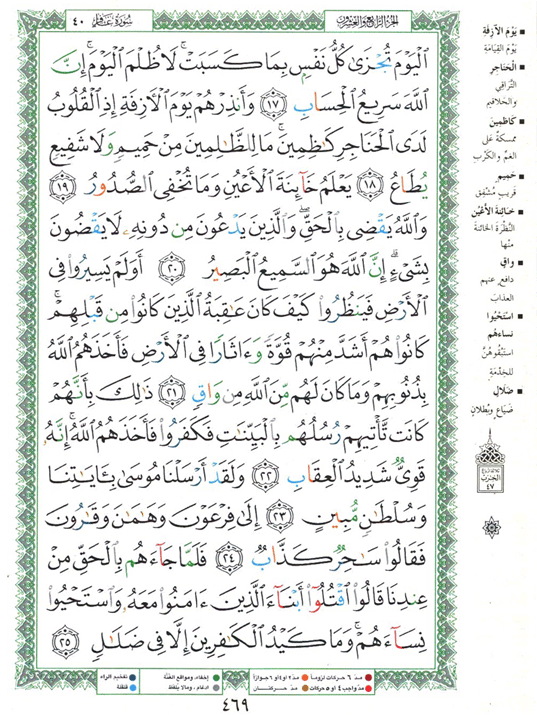 الجزء الرابع والعشرون
سورة غافر ٤٠
الْيَوْمَ تُجْزَىٰ كُلُّ نَفْسٍۭ بِمَا كَسَبَتْ ۚ لَا ظُلْمَ الْيَوْمَ ۚ إِنَّ
اللَّهَ سَرِيعُ الْحِسَابِ ١٧ وَأَنذِرْهُمْ يَوْمَ الْآزِفَةِ إِذِ الْقُلُوبُ
لَدَى الْحَنَاجِرِ كَاظِمِينَ ۚ مَا لِلظَّالِمِينَ مِنْ حَمِيمٍ وَلَا شَفِيعٍ
يُطَاعُ ١٨ يَعْلَمُ خَائِنَةَ الْأَعْيُنِ وَمَا تُخْفِي الصُّدُورُ ١٩
وَاللَّهُ يَقْضِي بِالْحَقِّ ۖ وَالَّذِينَ يَدْعُونَ مِن دُونِهِ لَا يَقْضُونَ
بِشَيْءٍ ۗ إِنَّ اللَّهَ هُوَ السَّمِيعُ الْبَصِيرُ ٢٠ أَوَلَمْ يَسِيرُوا فِي
الْأَرْضِ فَيَنظُرُوا كَيْفَ كَانَ عَاقِبَةُ الَّذِينَ كَانُوا مِن قَبْلِهِمْ ۚ
كَانُوا هُمْ أَشَدَّ مِنْهُمْ قُوَّةً وَءَاثَارًا فِي الْأَرْضِ فَأَخَذَهُمُ اللَّهُ
بِذُنُوبِهِمْ وَمَا كَانَ لَهُم مِّنَ اللَّهِ مِن وَاقٍ ٢١ ذَٰلِكَ بِأَنَّهُمْ
كَانَت تَّأْتِيهِمْ رُسُلُهُم بِالْبَيِّنَاتِ فَكَفَرُوا فَأَخَذَهُمُ اللَّهُ ۚ إِنَّهُ
قَوِيٌّ شَدِيدُ الْعِقَابِ ٢٢ وَلَقَدْ أَرْسَلْنَا مُوسَىٰ بِـَٔايَاتِنَا
وَسُلْطَانٍ مُّبِينٍ ٢٣ إِلَىٰ فِرْعَوْنَ وَهَامَانَ وَقَارُونَ
فَقَالُوا سَاحِرٌ كَذَّابٌ ٢٤ فَلَمَّا جَاءَهُم بِالْحَقِّ مِنْ
عِندِنَا قَالُوا اقْتُلُوا أَبْنَاءَ الَّذِينَ ءَامَنُوا مَعَهُ وَاسْتَحْيُوا
نِسَاءَهُمْ ۚ وَمَا كَيْدُ الْكَافِرِينَ إِلَّا فِي ضَلَالٍ ٢٥
يَوْمَ الآزِفَةِ
يَوْمَ القِيَامَةِ
الْحَنَاجِرِ
التَّرَاقِي
والحَلاقِيم
كَاظِمِينَ
مُمْسِكَةً عَلى
الغَمِّ والكَرْب
حَمِيمٍ
قَرِيبٍ مُشْفِق
خَائِنَةَ الأَعْيُنِ
النَّظْرَةَ الخَائِنَةَ
مِنْهَا
وَاقٍ
دافِعٍ عنهم
العذاب
اسْتَحْيُوا
نِسَاءهم
اسْتَبْقُوهُنَّ
للخِدْمَةِ
ضَلَالٍ
ضَيَاعٍ وبُطْلَانٍ
الحزب
٤٧
مدّ ٦ حركات لزوماً
مدّ ٢ أو ٤ أو ٦ جوازاً
إخفاء، ومواقع الغنّة
تفخيم الراء
مدّ واجب ٤ أو ٥ حركات
مدّ حركتان
ادغام، وما لا يُلفظ
قلقلة
٤٦٩